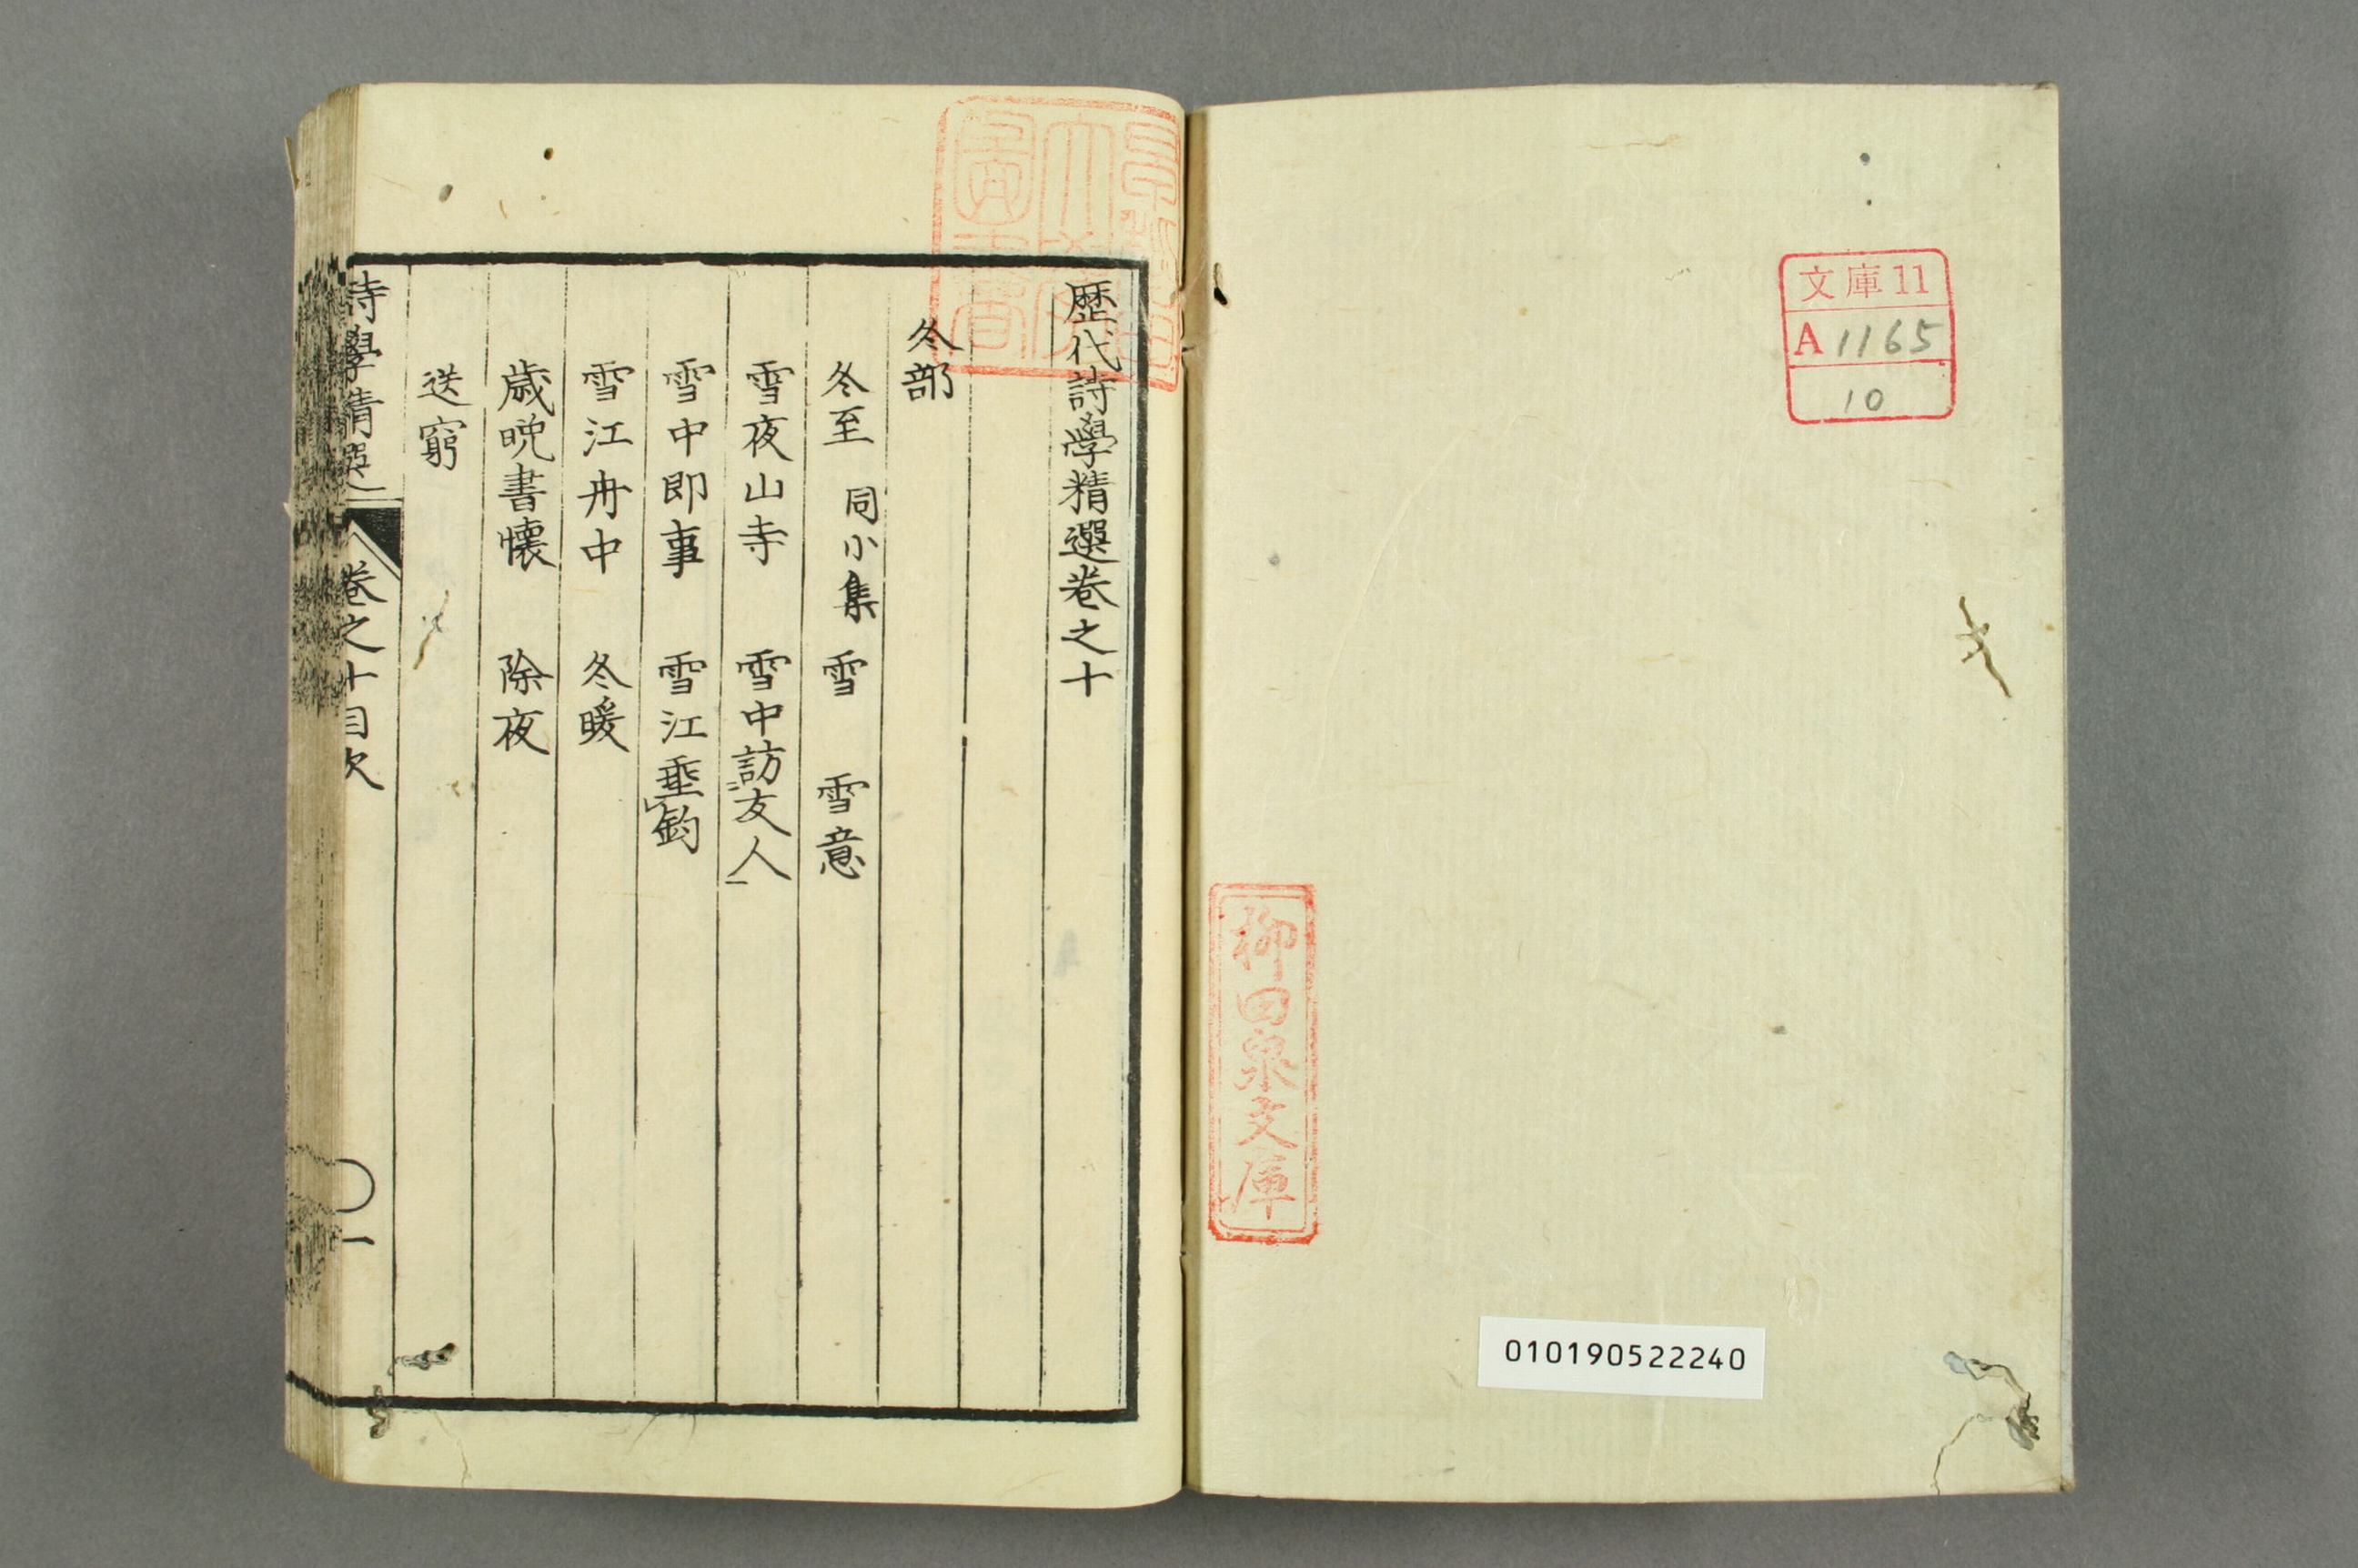 文庫11
A 1165
10
柳田泉文庫
010190522240
歴代詩學精選卷之十
冬部
冬至 同小集 雪 雪意
雪夜山寺 雪中訪友人
雪中即事 雪江垂釣
雪江舟中 冬暖
歳晩書懐 除夜
送窮
詩學精選 卷之十目次 一